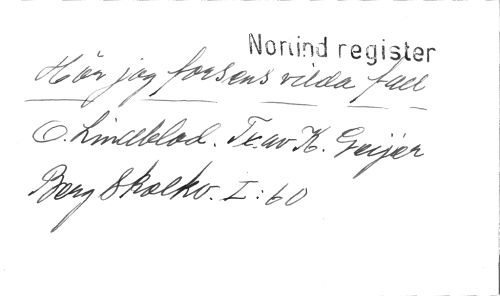 Nonind register
Hör jag forsens vilda fall
O. Lindblad. Tr. av K. Geijer
Berg Skolkv. I:60